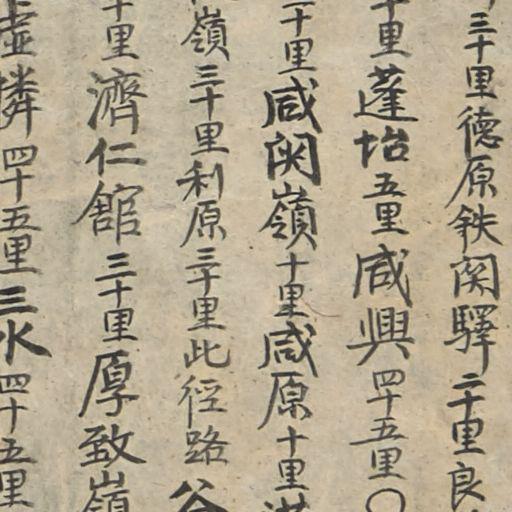 三十里德原鉄関驛二十里良
十里蓬坮五里咸興四十五里〇
二十里咸関嶺十里咸原十里
嶺三十里利原三十里此径路
十里濟仁舘三十里厚致嶺
虛獜四十五里三水四十五里